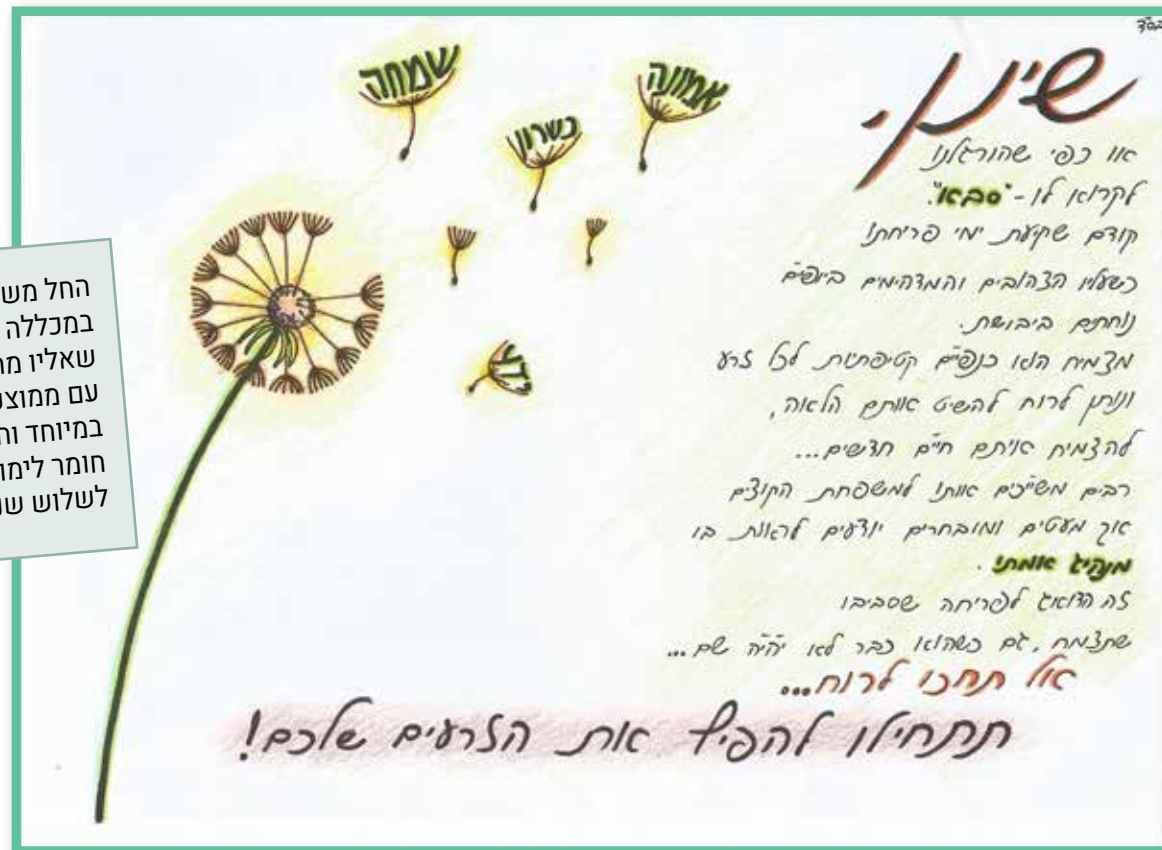 בס"ד
שינן.
או כפי שהורגלנו
לקרוא לו - "סבא".
קודם שקיעת ימי פריחתו
כשעליו הצהובים והמדהימים ביופיים
נוחתים ביבושת.
מצמיח הוא כנפיים קטיפתיות לכל זרע
ונותן לרוח להשיט אותם הלאה,
להצמיח איתם חיים חדשים...
רבים משייכים אותו למשפחת הקוצים
אך מעטים ומובחרים יודעים לראות בו
מנהיג אמתי.
זה הדואג לפריחה שסביבו
שתצמח, גם כשהוא כבר לא יהיה שם...
אל תחכו לרוח...
תתחילו להפיץ את הזרעים שלכם!
שמחה
אמונה
כשרון
ידע
החל מש
במכללה
שאליו
עם
במיוחד
חומר
לשלוש